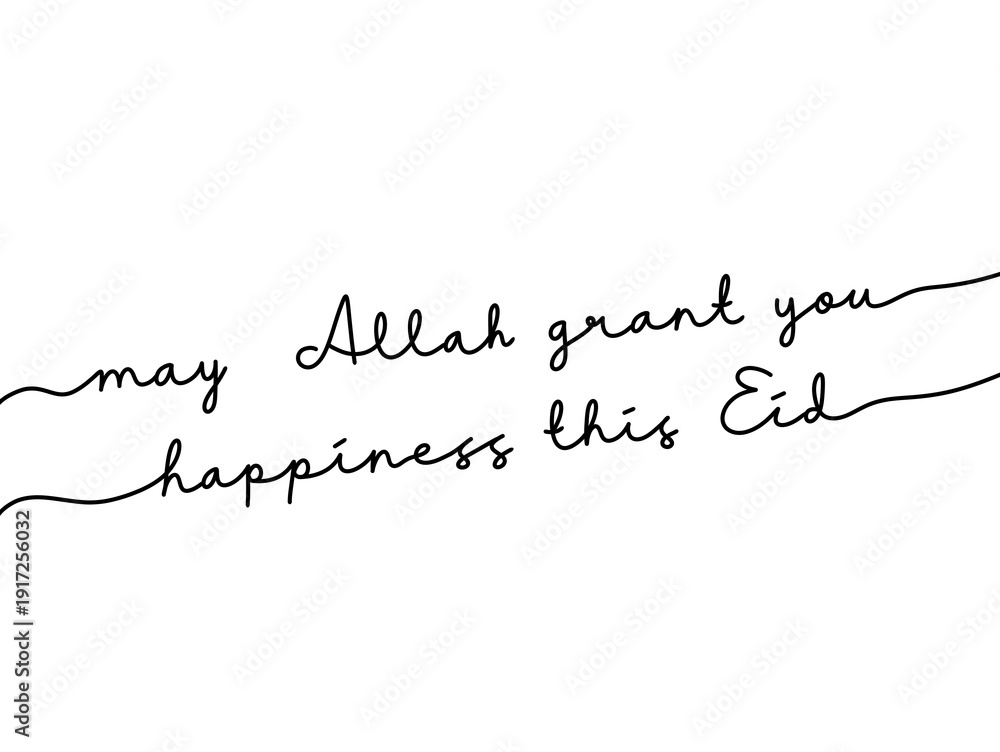 may Allah grant you
happiness this Eid
Adobe Stock | #1917256032